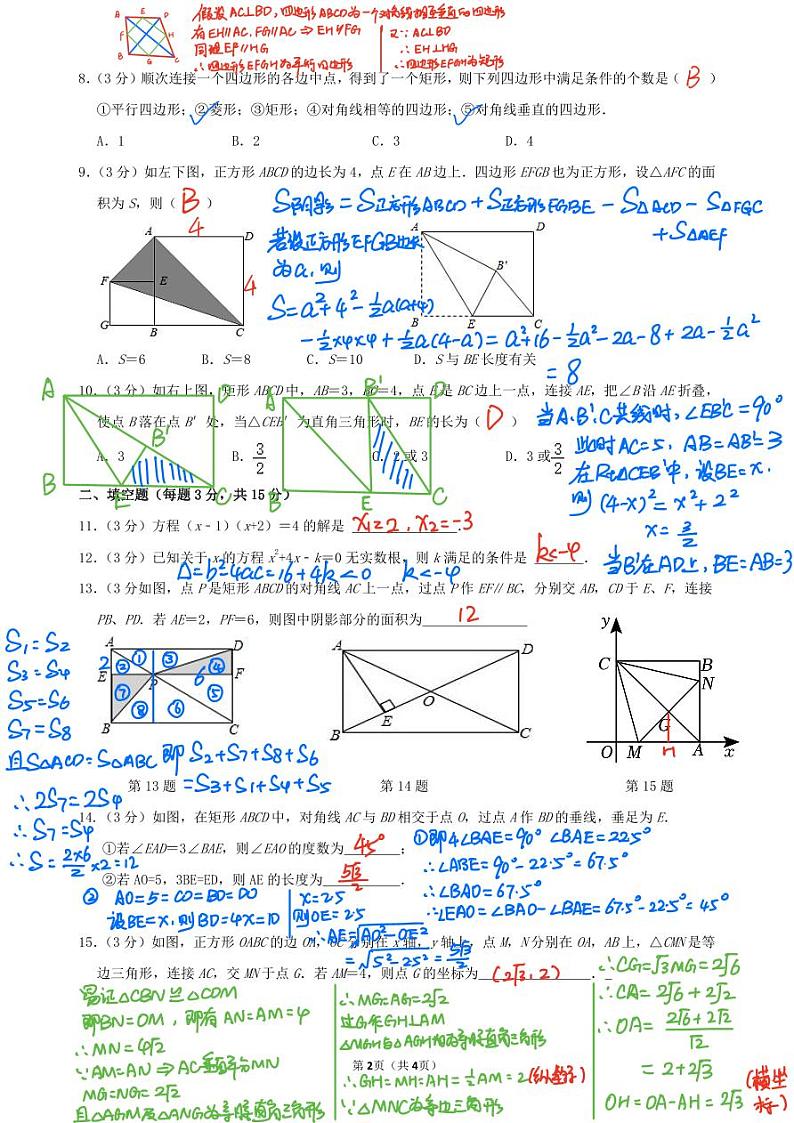 假设AC⊥BD，四边形ABCD为一个对角线相互垂直的四边形
有EH∥AC, FG∥AC ⇒ EH∥FG
同理EF∥HG
∴四边形EFGH为平行四边形
又∵AC⊥BD
∴EH⊥HG
∴四边形EFGH为矩形
A E D
H F
B G C
8.（3分）顺次连接一个四边形的各边中点，得到了一个矩形，则下列四边形中满足条件的个数是（ B ）
①平行四边形；②菱形；③矩形；④对角线相等的四边形；⑤对角线垂直的四边形．
A．1 B．2 C．3 D．4
9.（3分）如左下图，正方形ABCD的边长为4，点E在AB边上．四边形EFGB也为正方形，设△AFC的面
积为S，则（ B ）
S阴影=S正方形ABCD+S正方形EFGB-S△ACD-S△FGC
+S△AEF
若设正方形EFGB边长
为a，则
S=a²+4²-½a(a+4)
-½×4×4+½a(4-a)=a²+16-½a²-2a-8+2a-½a²
=8
4
A D
F E 4
G B C
A D
B'
B E C
A．S＝6 B．S＝8 C．S＝10 D．S与BE长度有关
10.（3分）如右上图，矩形ABCD中，AB=3，BC=4，点E是BC边上一点，连接AE，把∠B沿AE折叠，
使点B落在点B′处，当△CEB′为直角三角形时，BE的长为（ D ）
A．3 B．3/2 C．2或3 D．3或3/2
A D
B'
B E C
A B' D
B E C
当A.B'.C共线时，∠EB'C=90°
此时AC=5，AB=AB'=3
在Rt△CEB'中，设BE=x.
则(4-x)²=x²+2²
x=3/2
当B'在AD上，BE=AB=3
二、填空题（每题3分，共15分）
11.（3分）方程（x﹣1）（x+2）＝4的解是 x₁=2，x₂=-3 ．
12.（3分）已知关于x的方程x²+4x﹣k＝0无实数根，则k满足的条件是 k<-4 ．
△=b²-4ac=16+4k<0 k<-4
13.（3分如图，点P是矩形ABCD的对角线AC上一点，过点P作EF∥BC，分别交AB，CD于E、F，连接
PB、PD．若AE＝2，PF＝6，则图中阴影部分的面积为 12
S₁=S₂
S₃=S₄
S₅=S₆
S₇=S₈
且S△ACD=S△ABC 即S₂+S₇+S₈+S₆
=S₃+S₁+S₄+S₅
∴2S₇=2S₄
∴S₇=S₄
∴S=2×6/2×2=12
A D
2 ① ② ③ ④
E P 6 F
⑦ ⑧ ⑥ ⑤
B C
A D
E O
B C
y
C B
N
G
O M H A x
第13题 第14题 第15题
14.（3分）如图，在矩形ABCD中，对角线AC与BD相交于点O，过点A作BD的垂线，垂足为E．
①若∠EAD＝3∠BAE，则∠EAO的度数为 45° ；
②若AO=5，3BE=ED，则AE的长度为 5√3/2 ．
①即4∠BAE=90° ∠BAE=22.5°
∴∠ABE=90°-22.5°=67.5°
∴∠BAO=67.5°
∴∠EAO=∠BAO-∠BAE=67.5°-22.5°=45°
② AO=5=CO=BO=DO
设BE=x，则BD=4x=10
x=2.5
则OE=2.5
∴AE=√AO²-OE²
=√5²-2.5²=5√3/2
15.（3分）如图，正方形OABC的边OA，OC分别在x轴，y轴上，点M，N分别在OA，AB上，△CMN是等
边三角形，连接AC，交MN于点G．若AM＝4，则点G的坐标为 (2√3, 2) ．
易证△CBN≌△COM
即BN=OM，即有AN=AM=4
∴MN=4√2
∵AM=AN ⇒ AC垂直平分MN
MG=NG=2√2
且△AGM及△ANG为等腰直角三角形
∴MG=AG=2√2
过G作GH⊥AM
△MGH与△AGH均为等腰直角三角形
∴GH=MH=AH=½AM=2(纵坐标)
∵△MNC为等边三角形
∴CG=√3MG=2√6
∴CA=2√6+2√2
∴OA=2√6+2√2/√2
=2+2√3
OH=OA-AH=2√3
(横坐
标)
第2页（共4页）